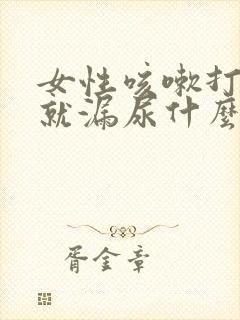 女性咳嗽打
就漏尿什麼
胥金章